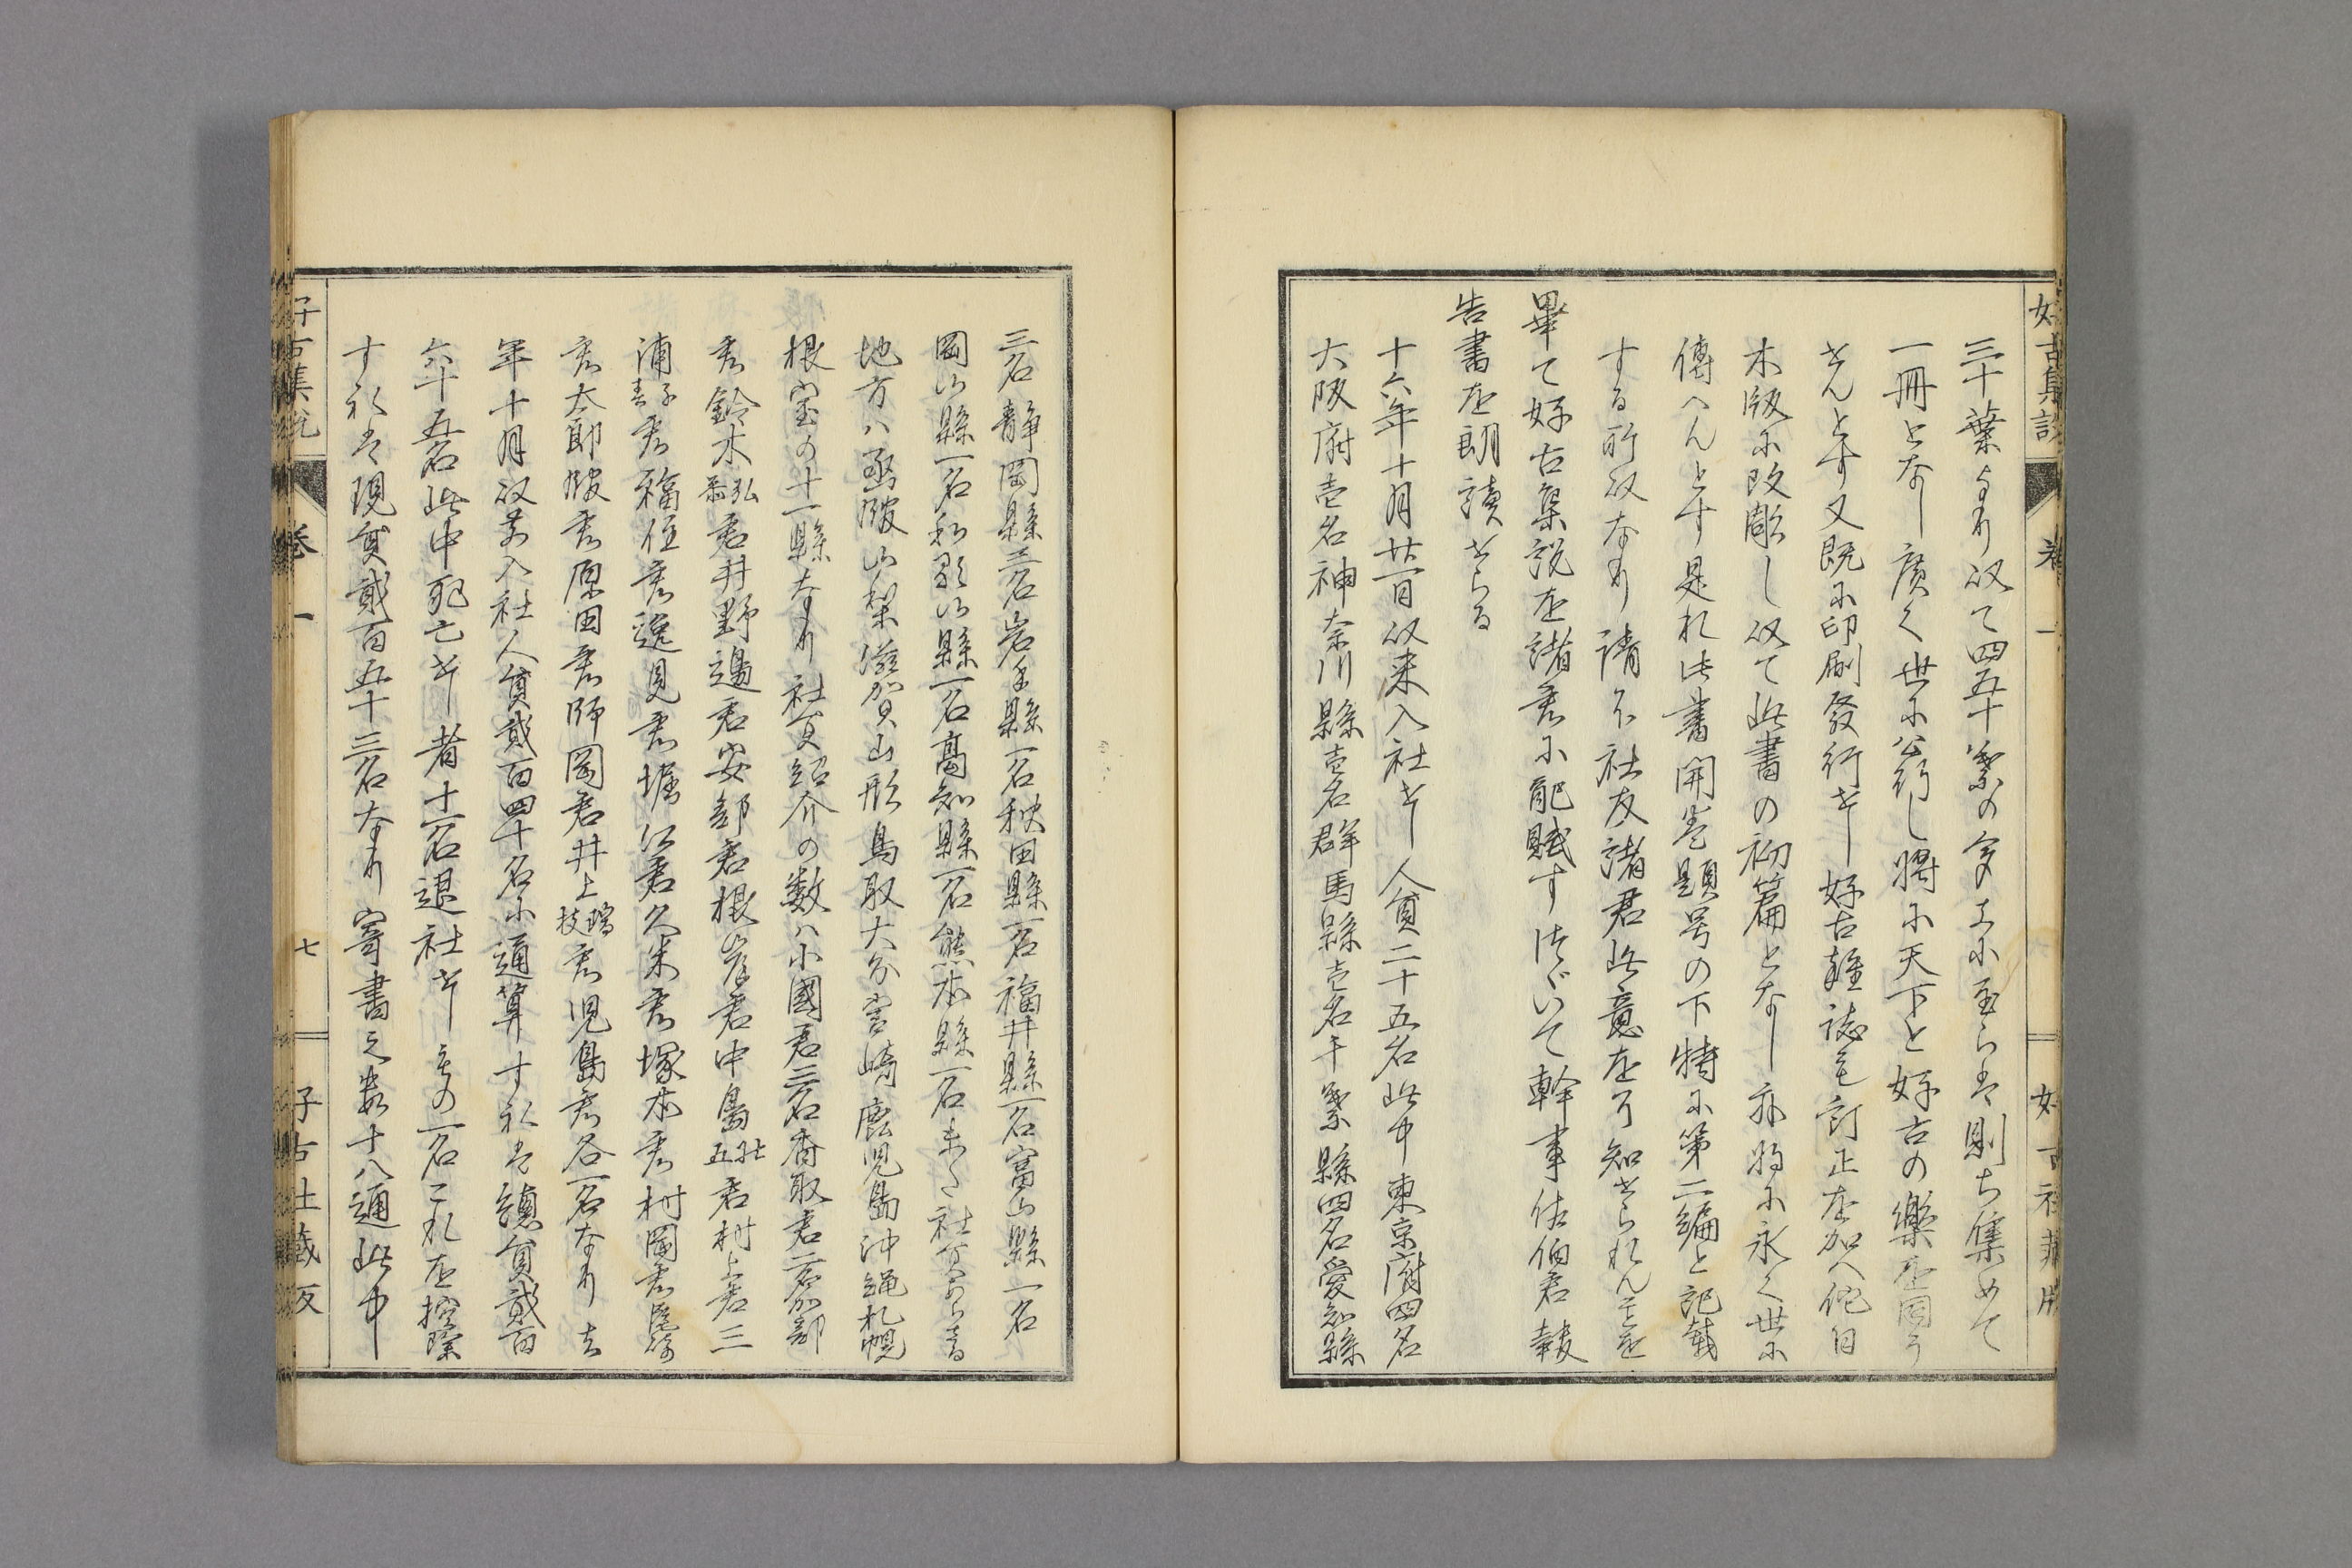 三十葉より以て四五十葉の多きに至らは則ち集めて
一冊となし廣く世に公行し將に天下と好古の樂を同う
せんとす又既に印刷發行せし好古雜誌も訂正を加へ他日
木版に改彫し以て此書の初篇となし亦將に永く世に
傳へんとす是れ此書開卷題号の下特に第二編と記載
する所以なり請ふ社友諸君此意を了知せられんことを
畢て好古集説を諸君に配賦す次いて幹事佐伯君報
告書を朗讀せらる
十六年十月廿一日以来入社せし人員二十五名此中東京府四名
大阪府壱名神奈川縣壱名群馬縣壱名千葉縣四名愛知縣
三名静岡縣三名岩手縣一名秋田縣一名福井縣一名富山縣一名
岡山縣一名和歌山縣一名高知縣一名熊本縣一名未た社員あらさる
地方ハ函館山梨滋賀山形鳥取大分宮崎鹿児島沖縄札幌
根室の十一縣なり社員紹介の数ハ小國君三名香取君二名加部
君鈴木弘恭君井野邊君安部君根岸君中島君村上君三
浦君福住君逸見君堀江君久米君塚本君村岡君
君太郎 君原田君師岡君井上君児島君各一名なり去
年十月以前入社人員貳百四十名に通算すれは總員貳百
六十五名此中死亡せし者十一名退社せし もの一名これを控除
すれは現員貳百五十三名なり寄書之数十八通此中
好古集説 卷一 七 好古社藏版